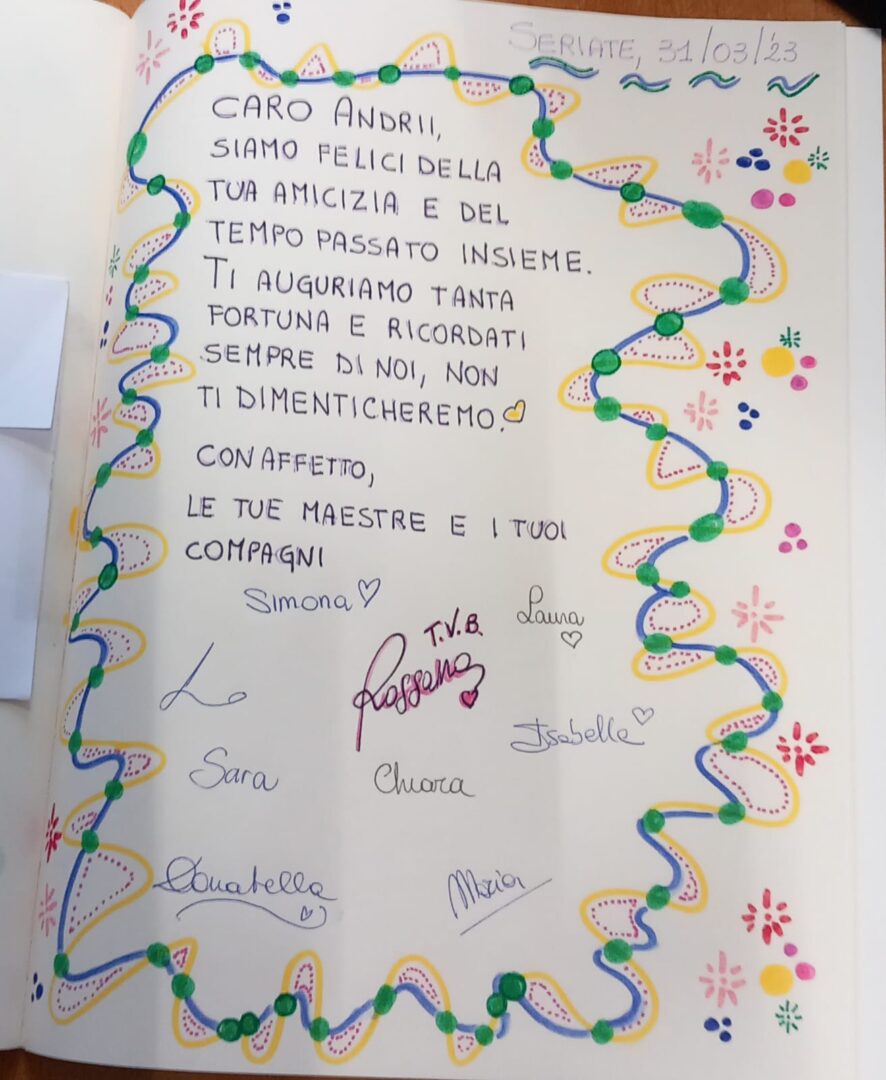 SERIATE, 31/03/'23
CARO ANDRII,
SIAMO FELICI DELLA
TUA AMICIZIA E DEL
TEMPO PASSATO INSIEME.
TI AUGURIAMO TANTA
FORTUNA E RICORDATI
SEMPRE DI NOI, NON
TI DIMENTICHEREMO!
CON AFFETTO,
LE TUE MAESTRE E I TUOI
COMPAGNI
Simona
Laura
T.V.B.
Rossana
Isabelle
Sara
Chiara
Donatella